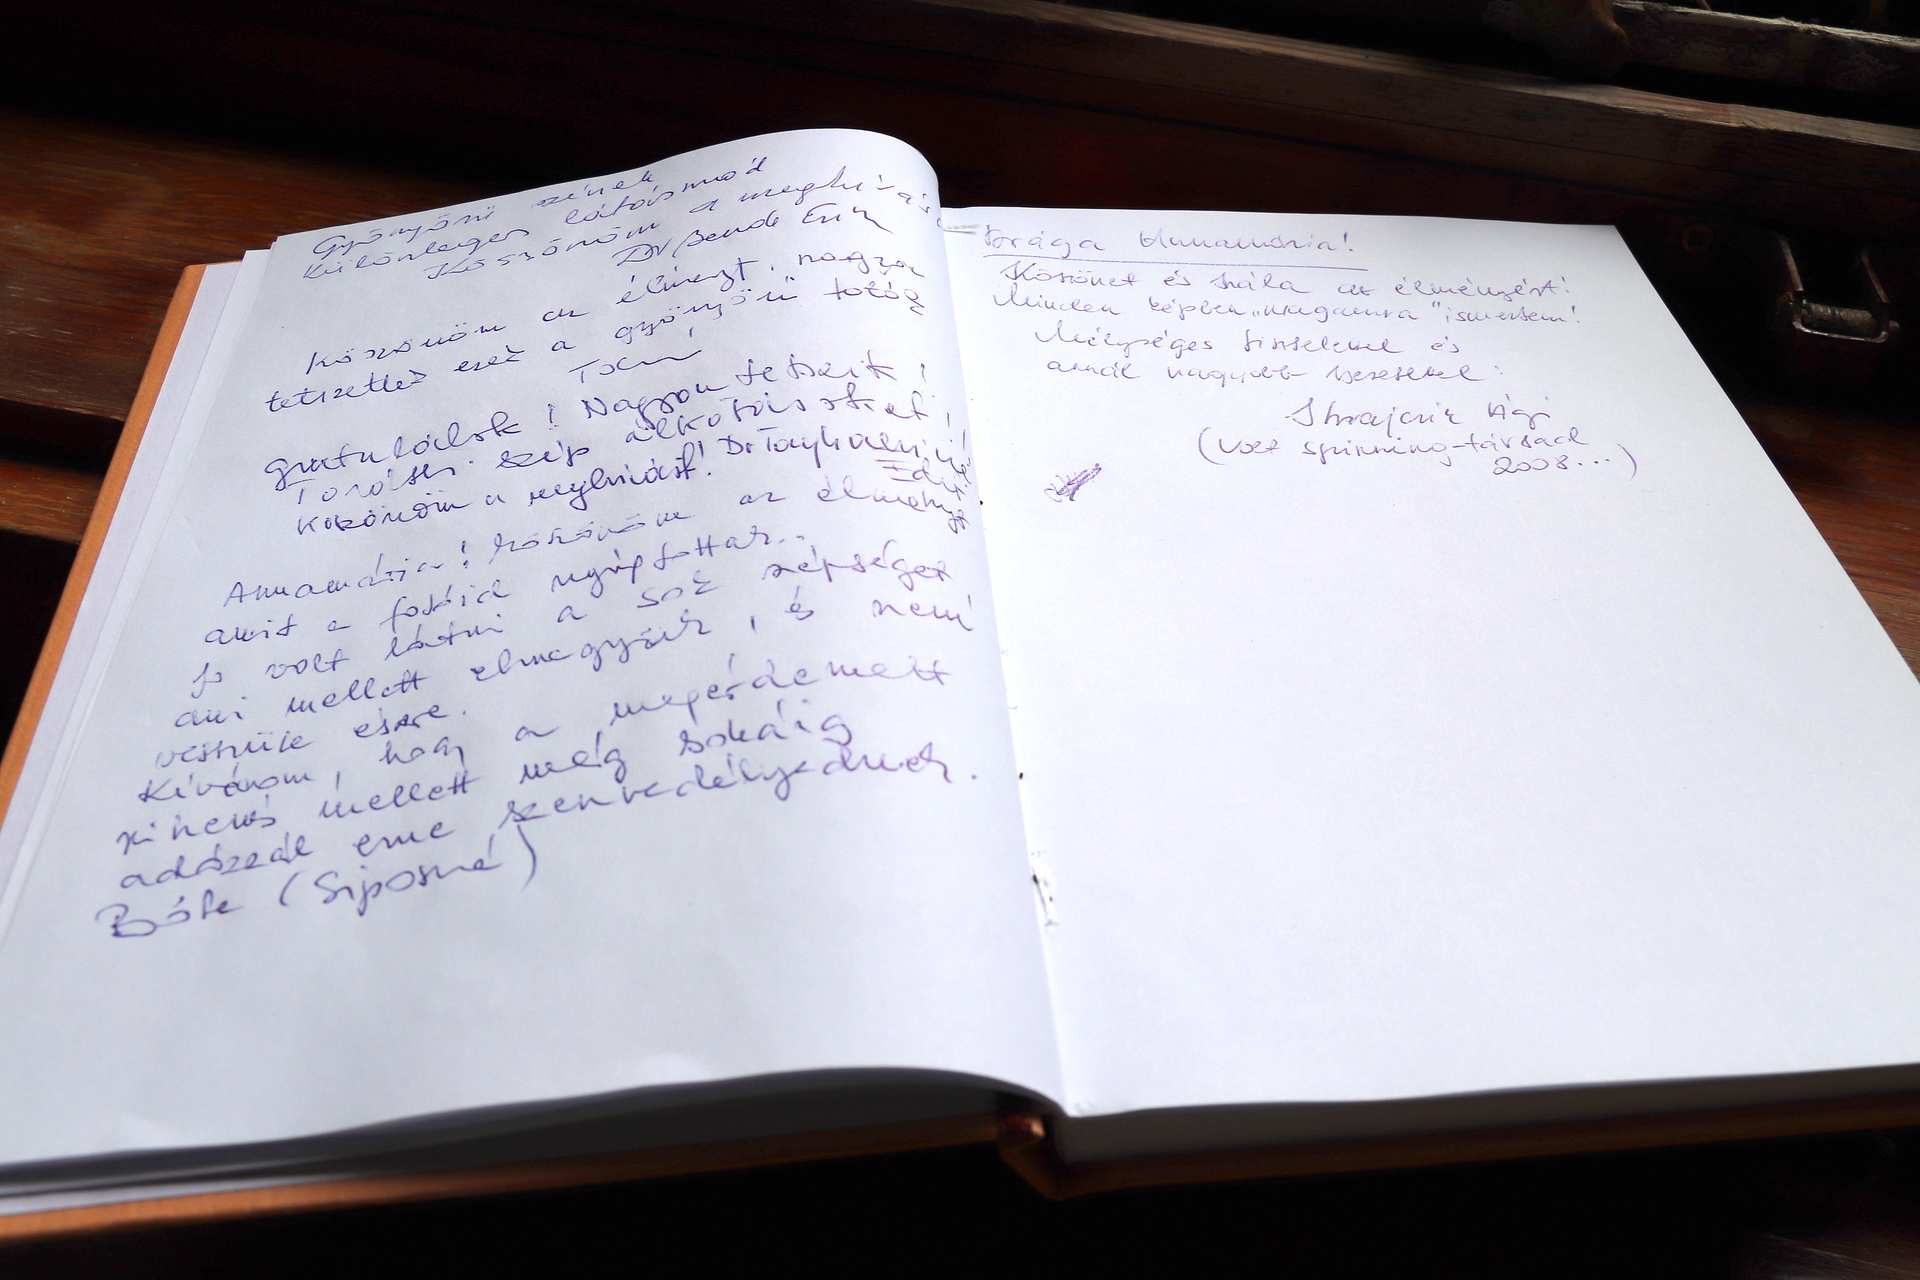 Gyönyörű színek
különleges látásmód
Köszönöm a meghívást
Dr Bende Erika
Köszönöm az élményt, nagyon
tetszettek ezek a gyönyörű fotók
Tomi
Gratulálok! Nagyon tetszik!
További szép alkotásokat!
Köszönöm a meghívást! Dr
Edit
Annamária! Köszönöm az élményt
amit a fotóid nyújtottak...
Jó volt látni a sok szépséget
ami mellett elmegyünk, és nem
vesszük észre.
Kívánom, hogy a megérdemelt
pihenés mellett még sokáig
adózzál eme szenvedélyednek.
Böbe (Siposné)
Drága Annamária!
Köszönet és hála az élményért!
Minden képben „magamra" ismertem!
Mélységes tisztelettel és
annál nagyobb szeretettel:
Ági
(volt spinning-társad
2008...)